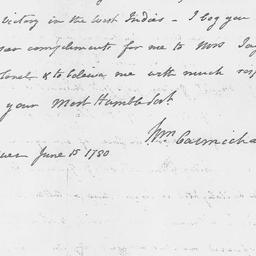 victory in the West Indies - I beg you
compliments for me to Mrs Jay
& to believe me with much
your Most Humble
Wm Carmicha
June 15 1780